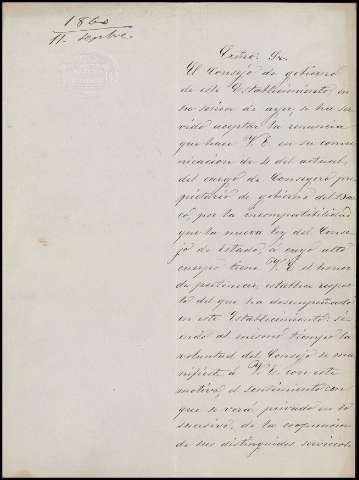 1860
11. Septbre.
Excmo. Sr.
El Consejo de gobierno
de este Establecimiento, en
su sesion de ayer, se ha ser
vido aceptar la renuncia
que hace V. E. en su comu
nicacion de 4 del actual,
del cargo de Consejero pro
pietario de gobierno del Ban
co, por la incompatibilidad
que la nueva ley del Conse
jo de Estado, á cuyo alto
cuerpo tiene V. E. el honor
de pertenecer, establece respec
to del que ha desempeñado
en este Establecimiento: si
endo al mismo tiempo la
voluntad del Consejo se ma
nifieste á V. E. con este
motivo, el sentimiento con
que se verá privado en lo
sucesivo, de la cooperacion
de sus distinguidos servicios